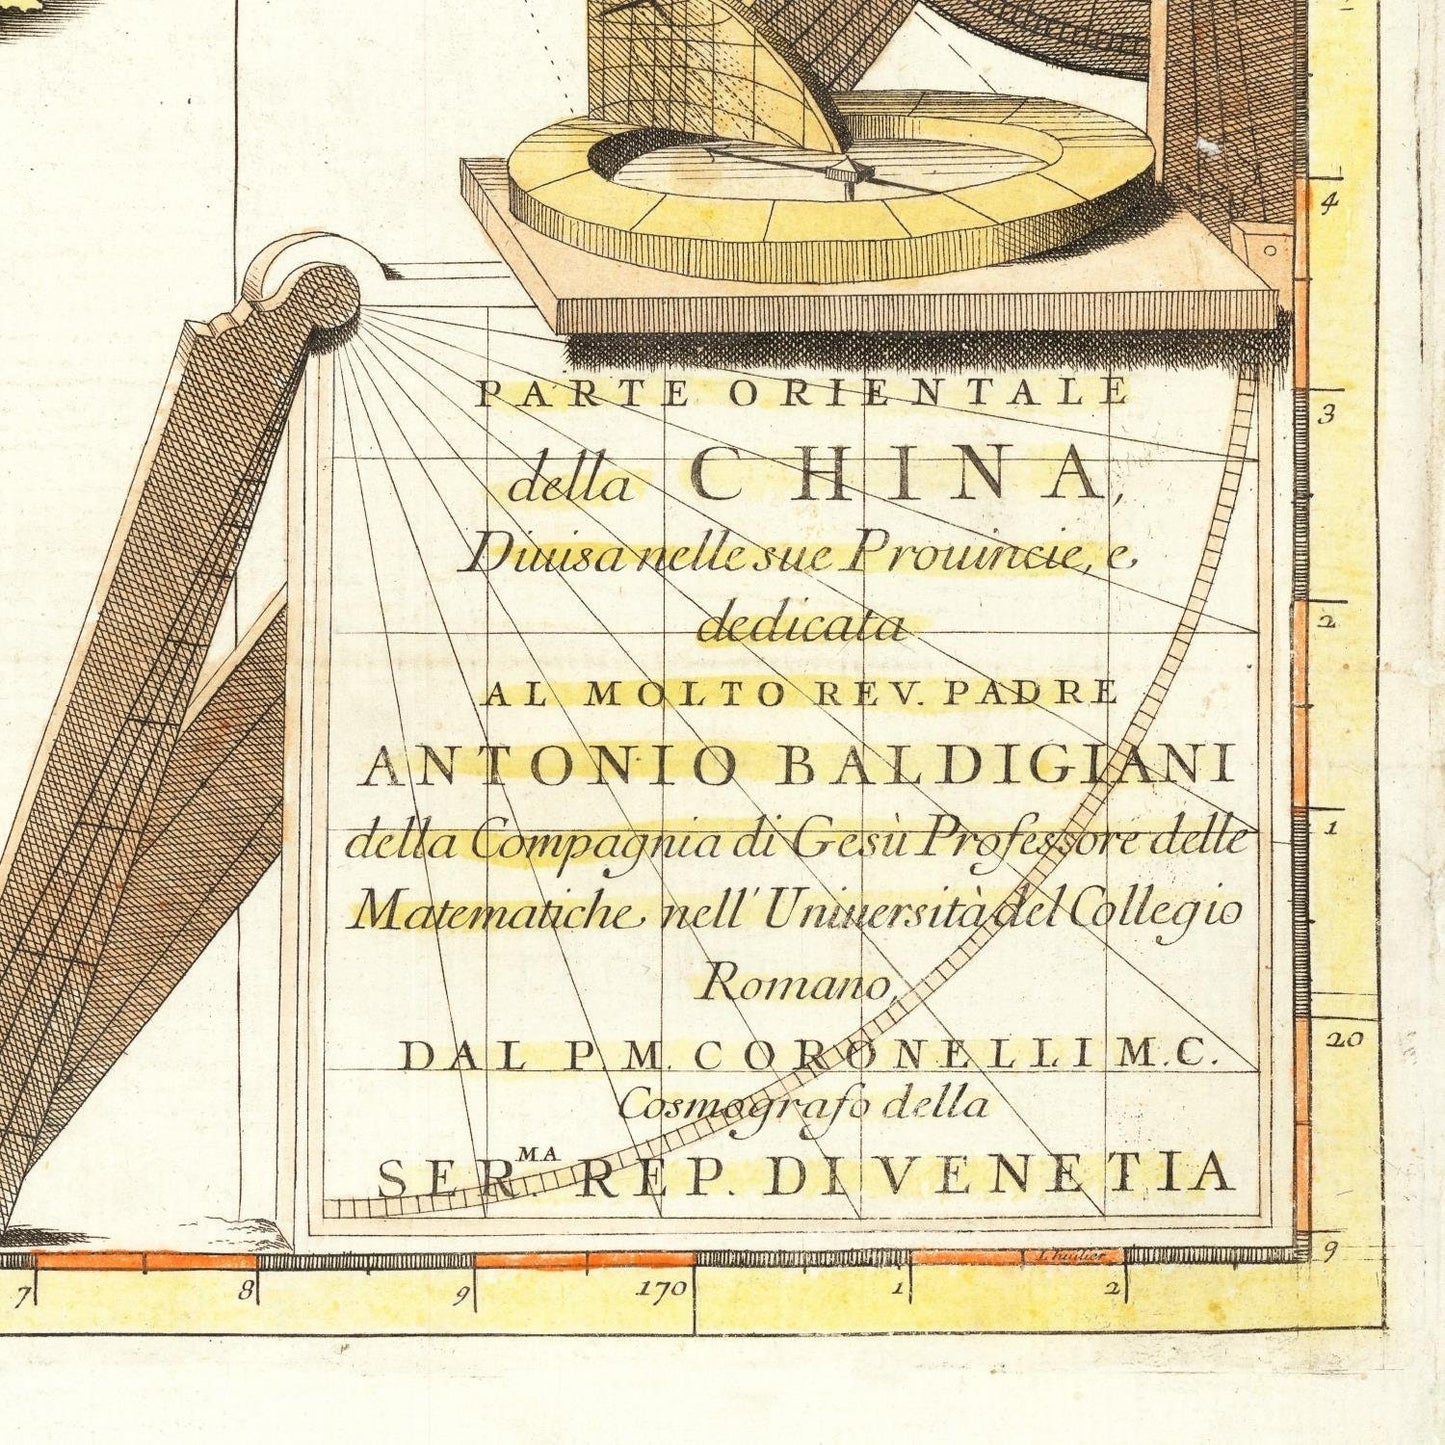 PARTE ORIENTALE
della CHINA,
Diuisa nelle sue Prouincie, e
dedicata
AL MOLTO REV. PADRE
ANTONIO BALDIGIANI
della Compagnia di Gesù Professore delle
Matematiche nell' Uniuersità del Collegio
Romano,
DAL P. M. CORONELLI M.C.
Cosmografo della
SER.MA REP. DI VENETIA
4
3
2
1
20
9
7 8 9 170 1 2